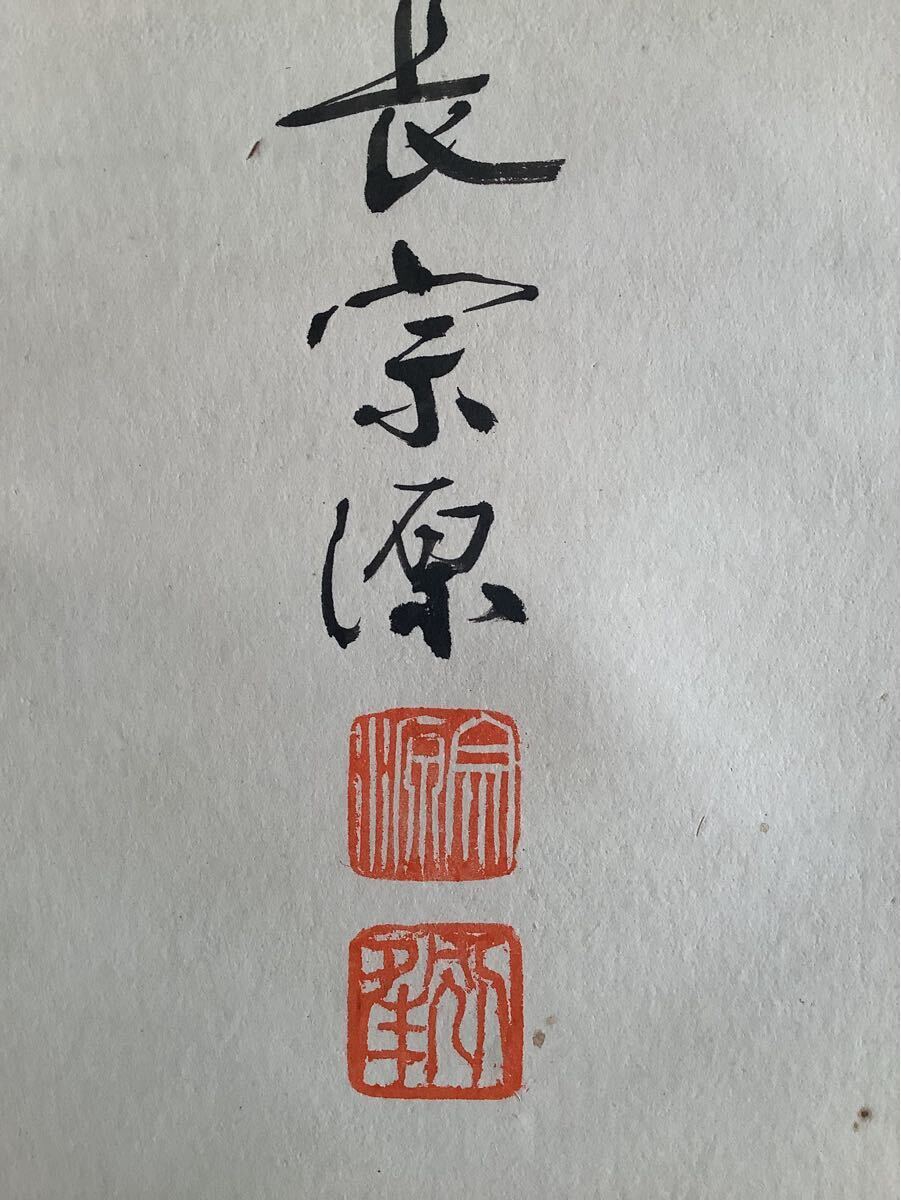 長宗源
宗源